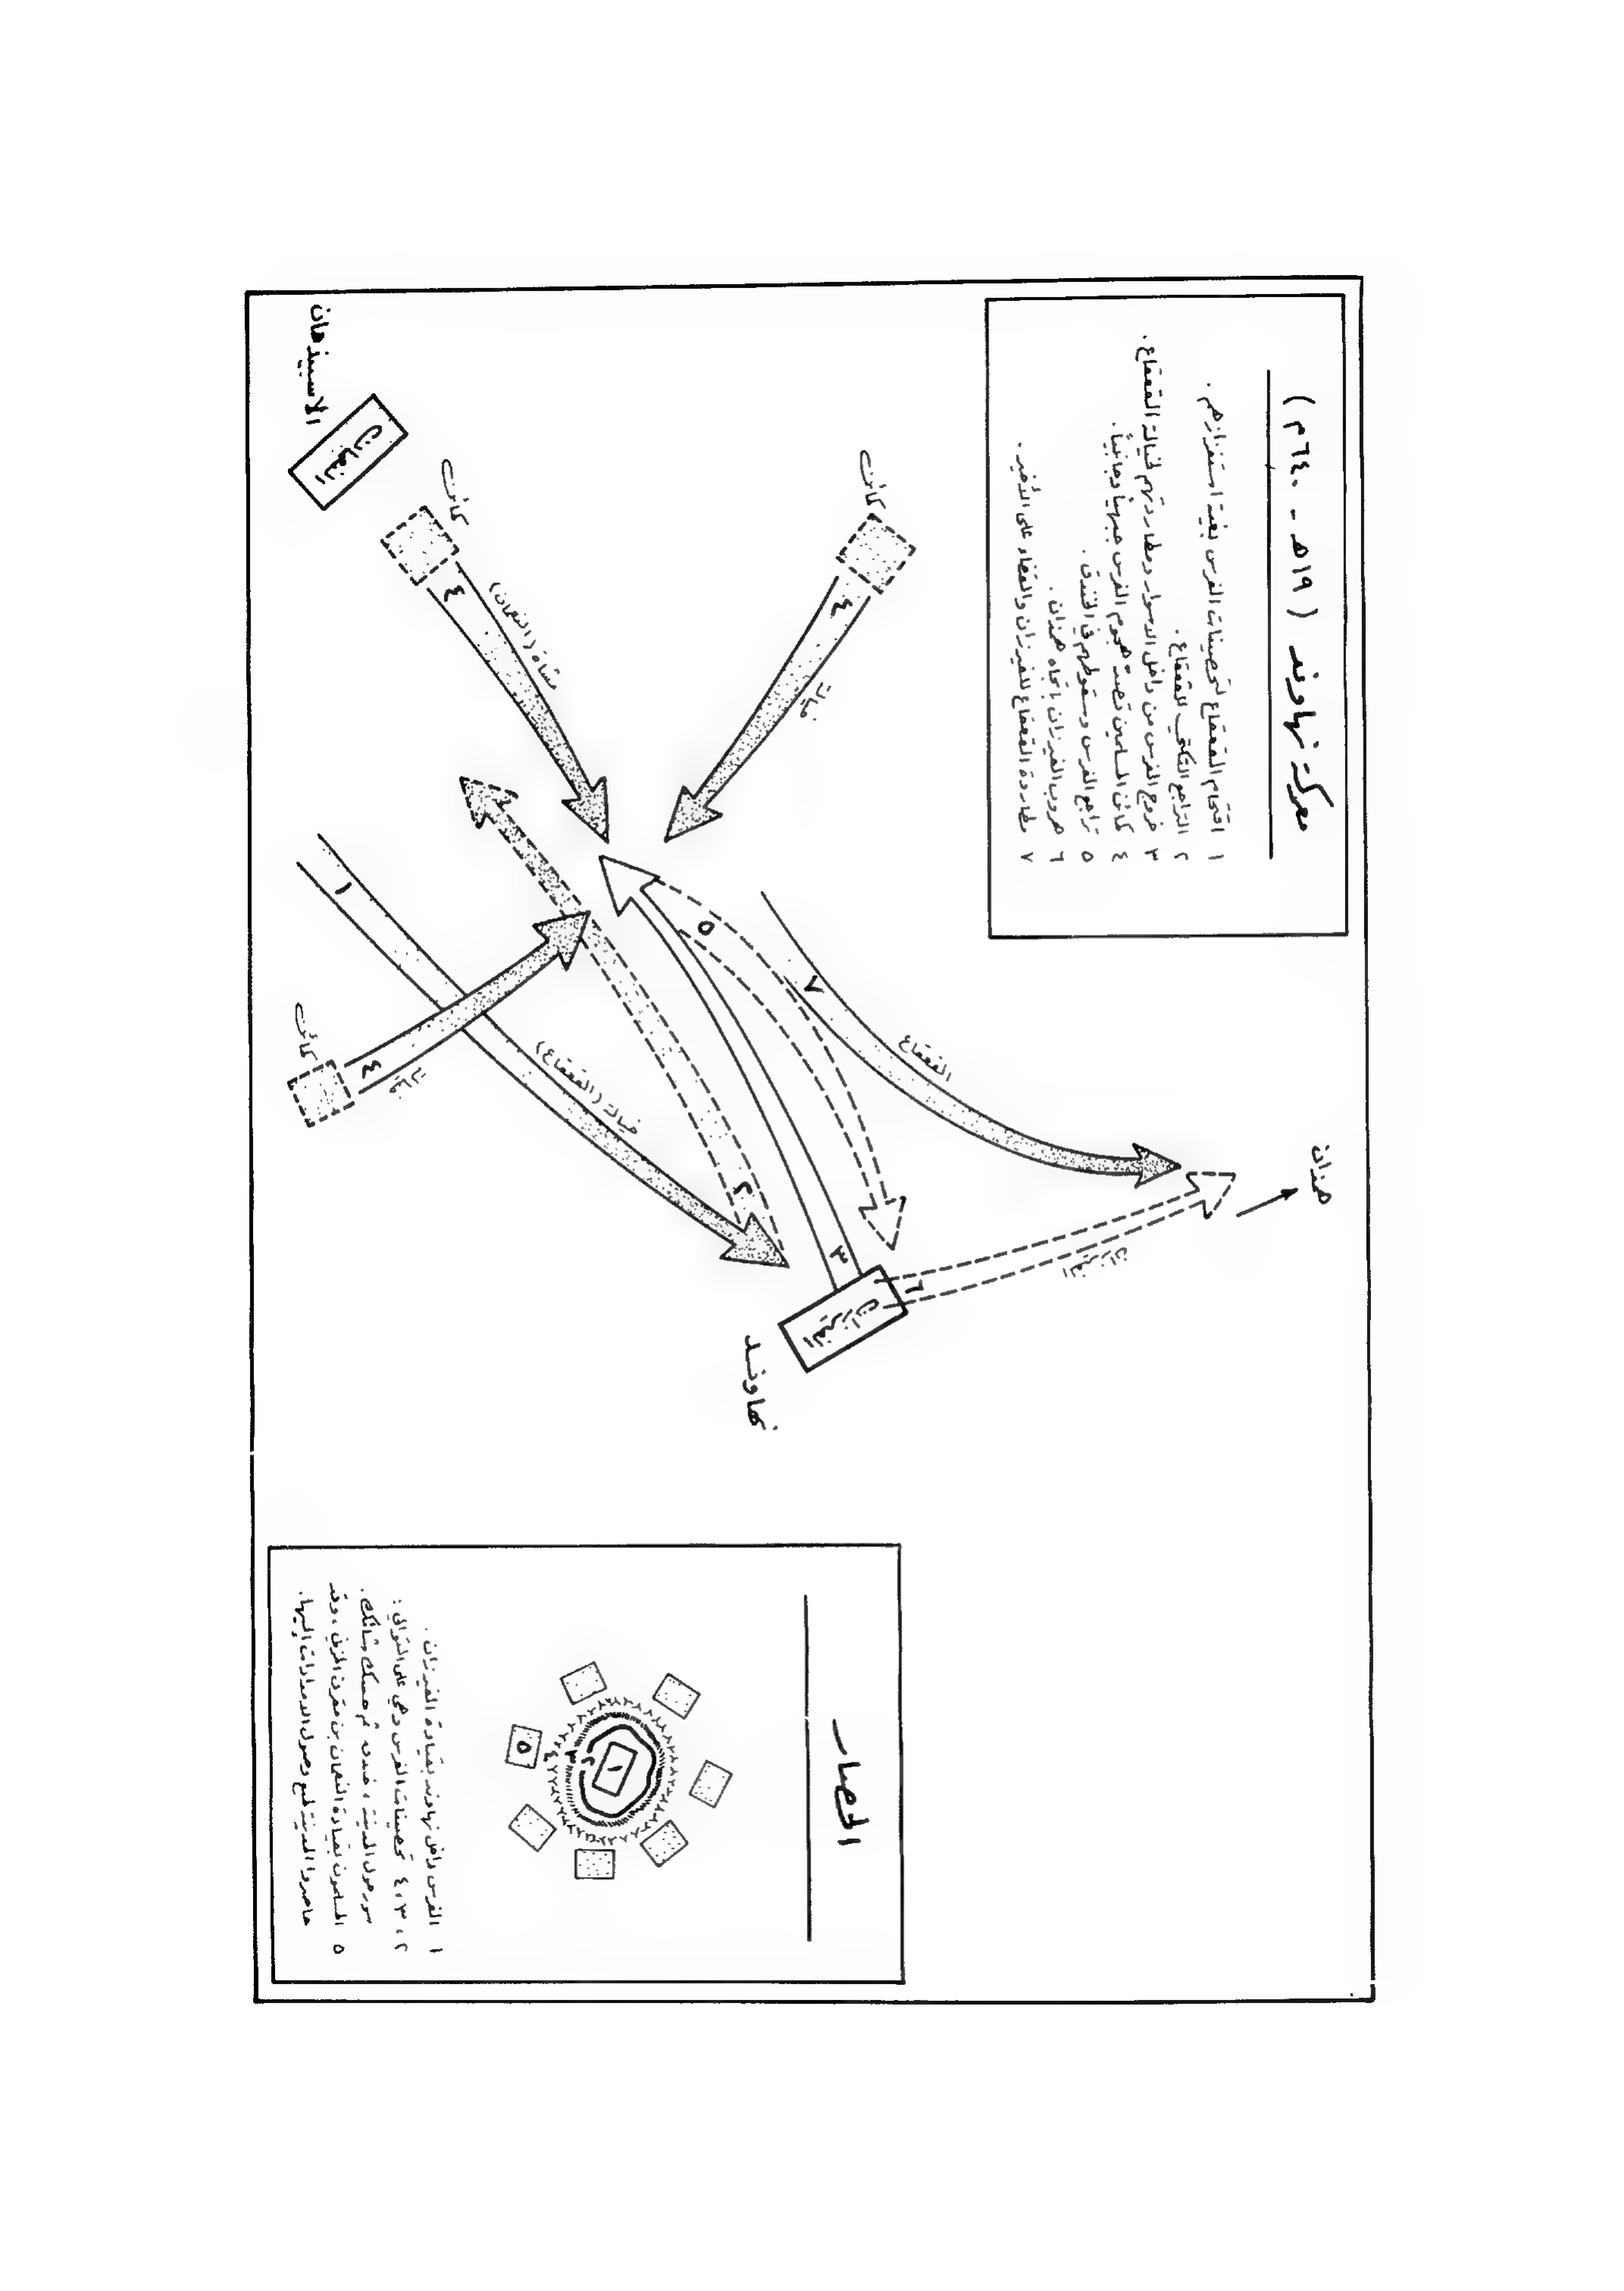 معركة نهاوند ( ١٩هـ - ٦٤٠م )
١ اقتحام القعقاع لتحصينات الفرس بغية استفزازهم .
٢ التراجع التكتي للقعقاع .
٣ خروج الفرس من داخل الاسوار ومطاردتهم لخيالة القعقاع .
٤ كمائن المسلمين تصد هجوم الفرس جبهياً وجانبياً .
٥ تراجع الفرس وسقوطهم في الخندق .
٦ هروب الفيرزان باتجاه همذان .
٧ مطاردة القعقاع للفيرزان والقضاء على الأخير .
همذان
الفيرزان
٦
القعقاع
٧
كمائن
٤
خيالة
٥
٣
الفيرزان
نهاوند
٢
كمائن
٤
مشاة (النعمان)
النعمان
الاسبيذهان
١
خيالة (القعقاع)
كمائن
٤
خيالة
الحصار
١
٢
٣
٤
٥
١ الفرس داخل نهاوند بقيادة الفيرزان .
٢ ، ٣ ، ٤ تحصينات الفرس وهي على التوالي :
سور حول المدينة ، خندق ثم حسك شائك .
٥ المسلمون بقيادة النعمان بن مقرن المزني ، وقد
حاصروا المدينة لمنع وصول الامدادات إليها .